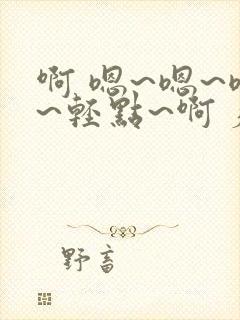 啊 嗯~嗯~
~轻點~啊
野畜